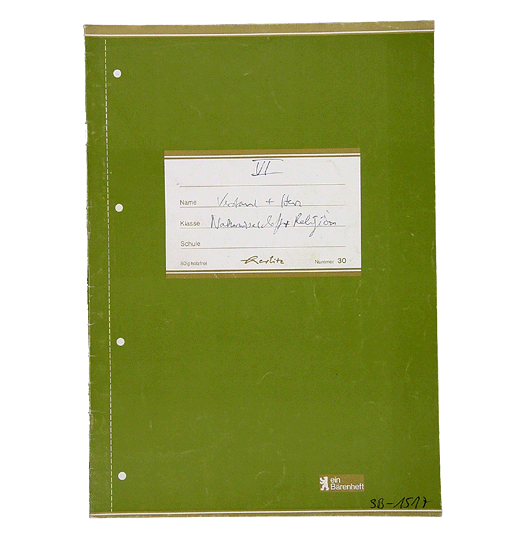 VI
Name Verstand + Herz
Klasse Naturwissenschaft + Religion
Schule
80 g holzfrei Herlitz Nummer 30
ein
Bärenheft
SB-1517